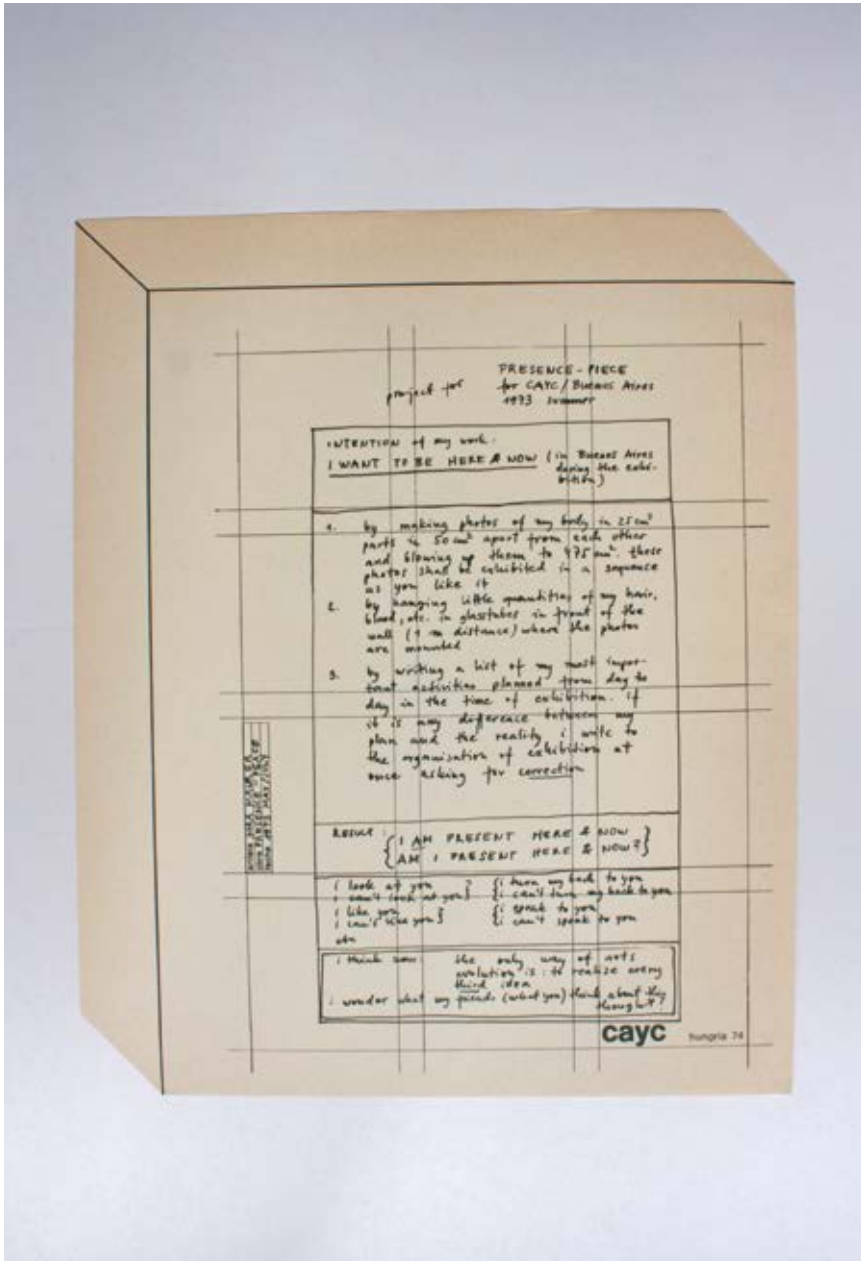 project for
PRESENCE-PIECE
for CAYC/Buenos Aires
1973 summer
INTENTION of my work:
I WANT TO BE HERE & NOW (in Buenos Aires
during the exhi-
bition)
1. by making photos of my body in 25 cm²
parts in 50 cm² apart from each other
and blowing up them to 475 cm². these
photos shall be exhibited in a sequence
as you like it
2. by hanging little quantities of my hair,
blood, etc. in glasstubes in front of the
wall (1 m distance) where the photos
are mounted
3. by writing a list of my most impor-
tant activities planned from day to
day in the time of exhibition. if
it is any difference between my
plan and the reality i write to
the organisation of exhibition at
once asking for correction
RESULT: {I AM PRESENT HERE & NOW
{AM I PRESENT HERE & NOW?}
i look at you ?
i can't look at you}
{i turn my back to you
{i can't turn my back to you
i like you }
i can't like you}
{i speak to you
{i can't speak to you
etc
i think now: the only way of arts
evolution is: to realize every
third idea
i wonder what my friends (what you) think about this
thought?
cayc hungria 74